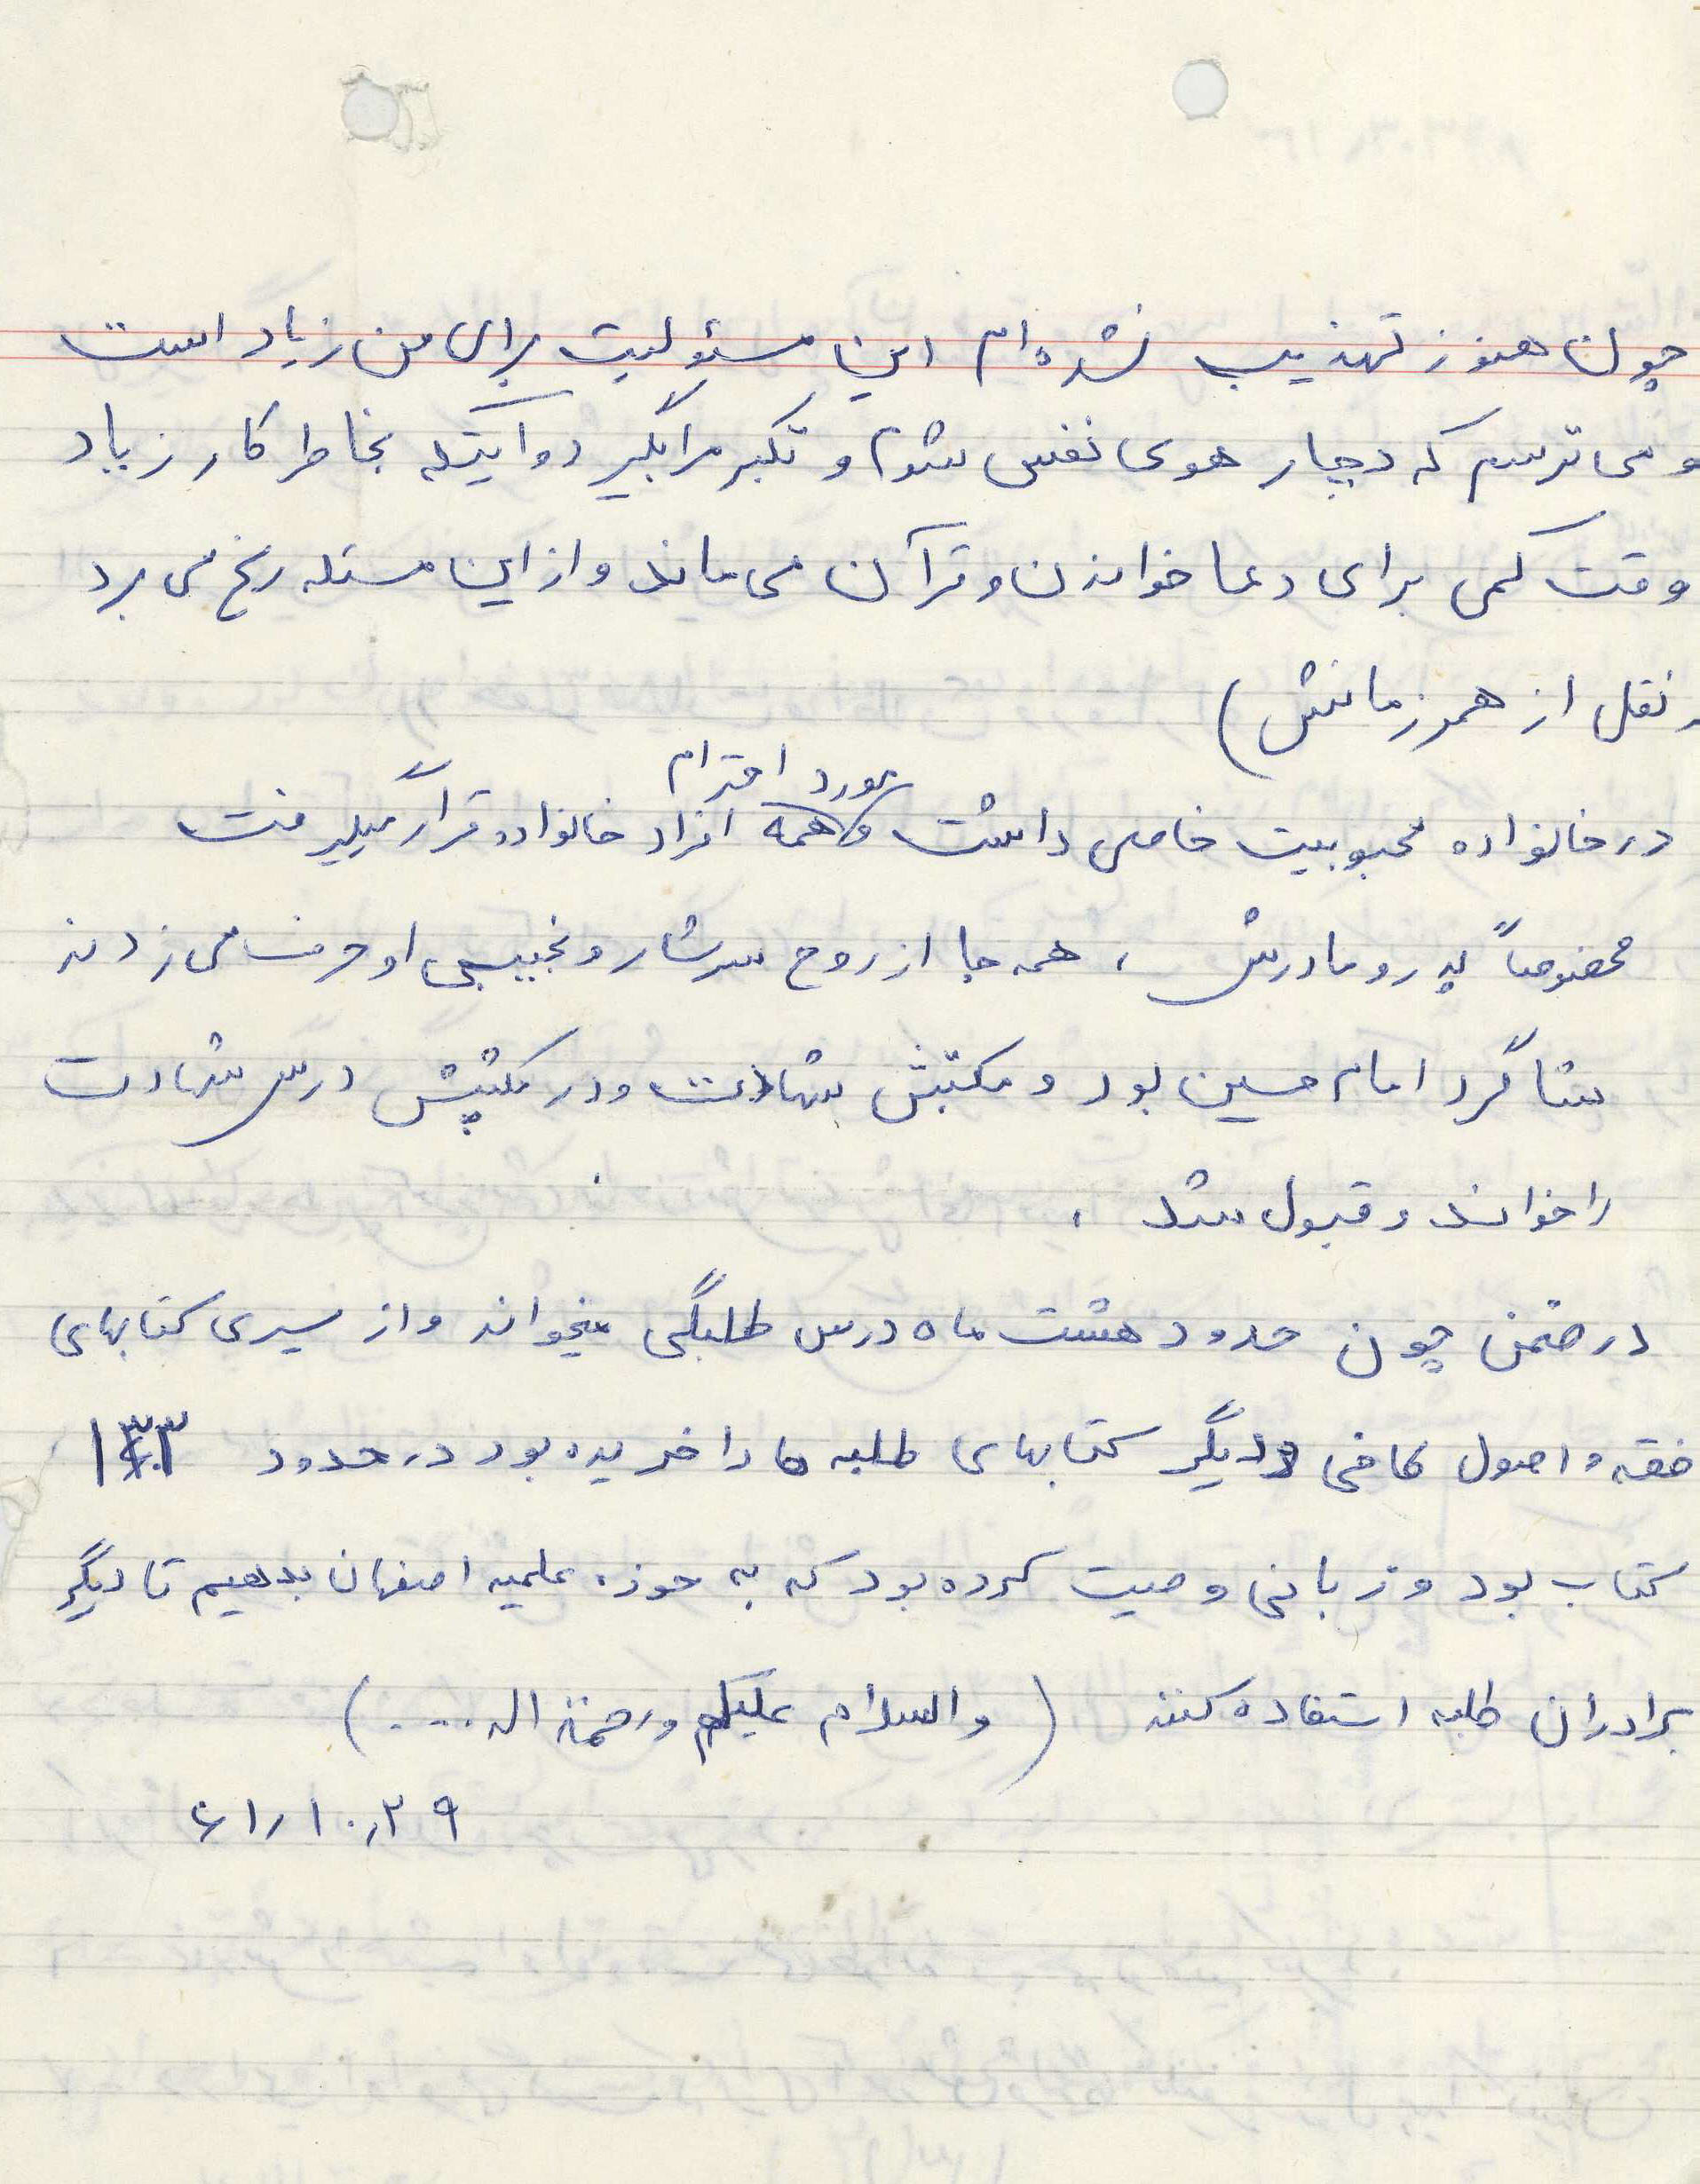 چون هنوز تهذیب نشده‌ام این مسئولیت برای من زیاد است
و می ترسم که دچار هوی نفس شوم و تکبر مرا بگیرد و اینکه بخاطر کار زیاد
وقت کمی برای دعا خواندن و قرآن می ماند و از این مسئله رنج می برد
نقل از همرزمانش)
در خانواده محبوبیت خاصی داشت و مورد احترام همه افراد خانواده قرار میگرفت
مخصوصاً پدر و مادرش، همه جا از روح سرشار و نجیبی او حرف می زدند
شاگرد امام حسین بود و مکتبش شهادت و در مکتبش درس شهادت
را خواند و قبول شد.
در ضمن چون حدود هشت ماه درس طلبگی میخواند و از سیری کتابهای
فقه و اصول کافی و دیگر کتابهای طلبه ها را خریده بود در حدود
کتاب بود و زبانی وصیت کرده بود که به حوزه علمیه اصفهان بدهیم تا دیگر
برادران طلبه استفاده کنند (والسلام علیکم و رحمة اله ....)
۶۱/۱۰/۲۹